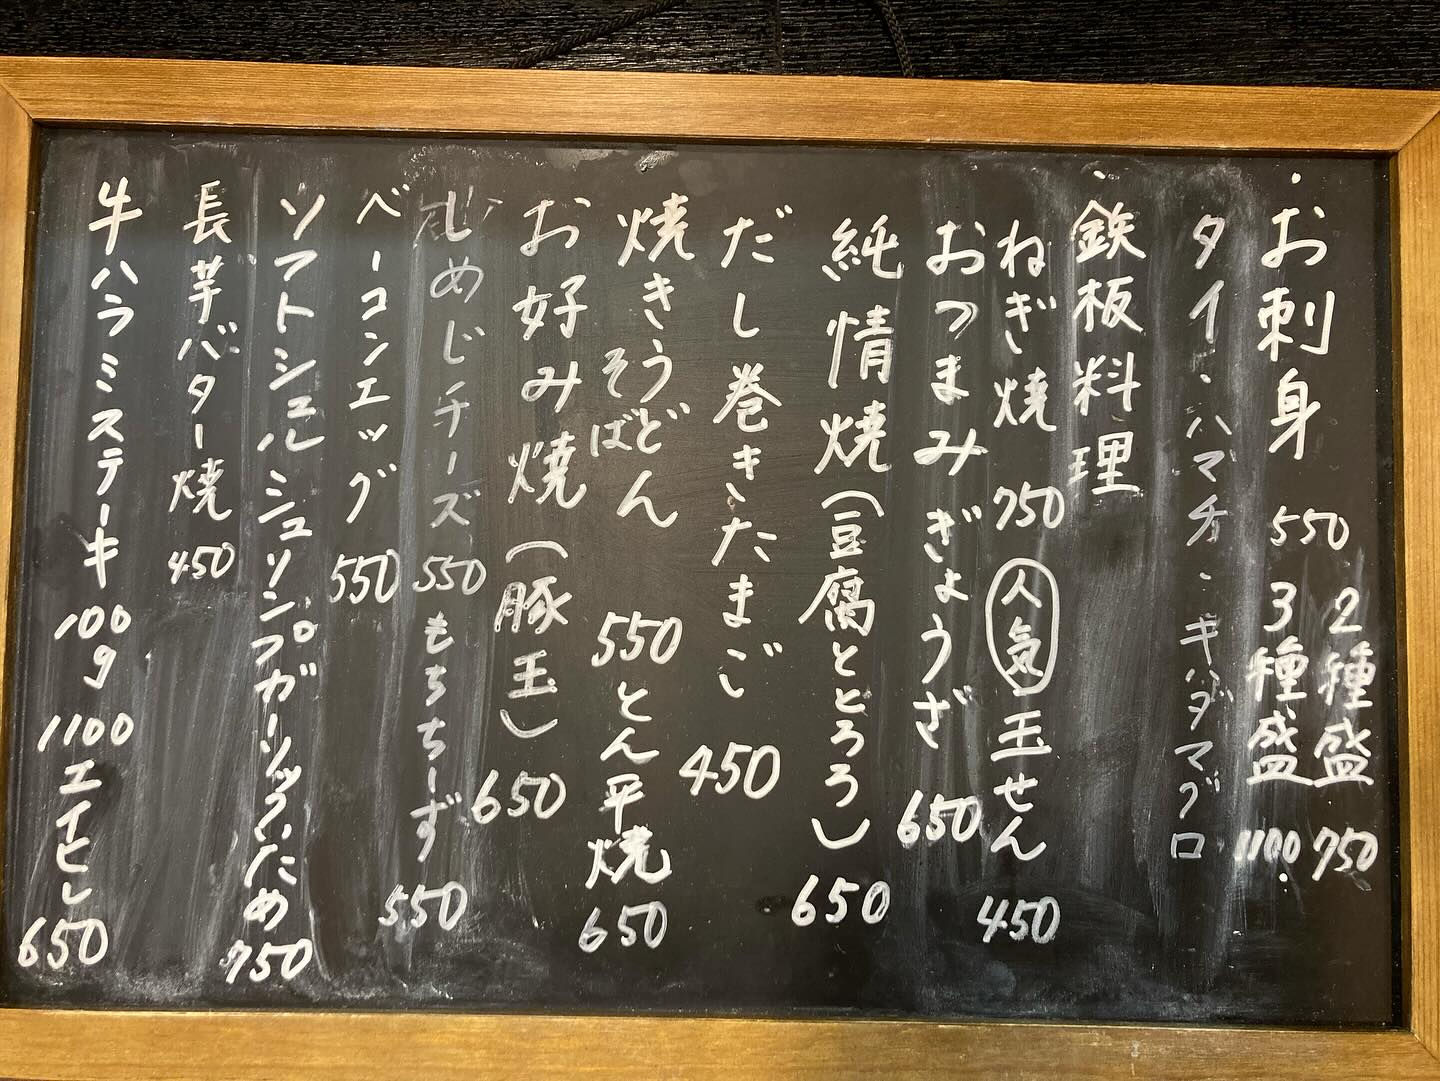 ・お刺身 550 2種盛 750
3種盛 1100.
タイ・ハマチ・キハダマグロ
・鉄板料理
ねぎ焼 750 人気 玉せん 450
おつまみぎょうざ 650
純情焼(豆腐ととろろ) 650
だし巻きたまご 450
焼きうどん そば 550 とん平焼 650
お好み焼(豚玉) 650
しめじチーズ 550 もちちーず 550
ベーコンエッグ 550
ソフトシェルシュリンプガーリックいため 750
長芋バター焼 450
牛ハラミステーキ 100g 1100 エイヒレ 650